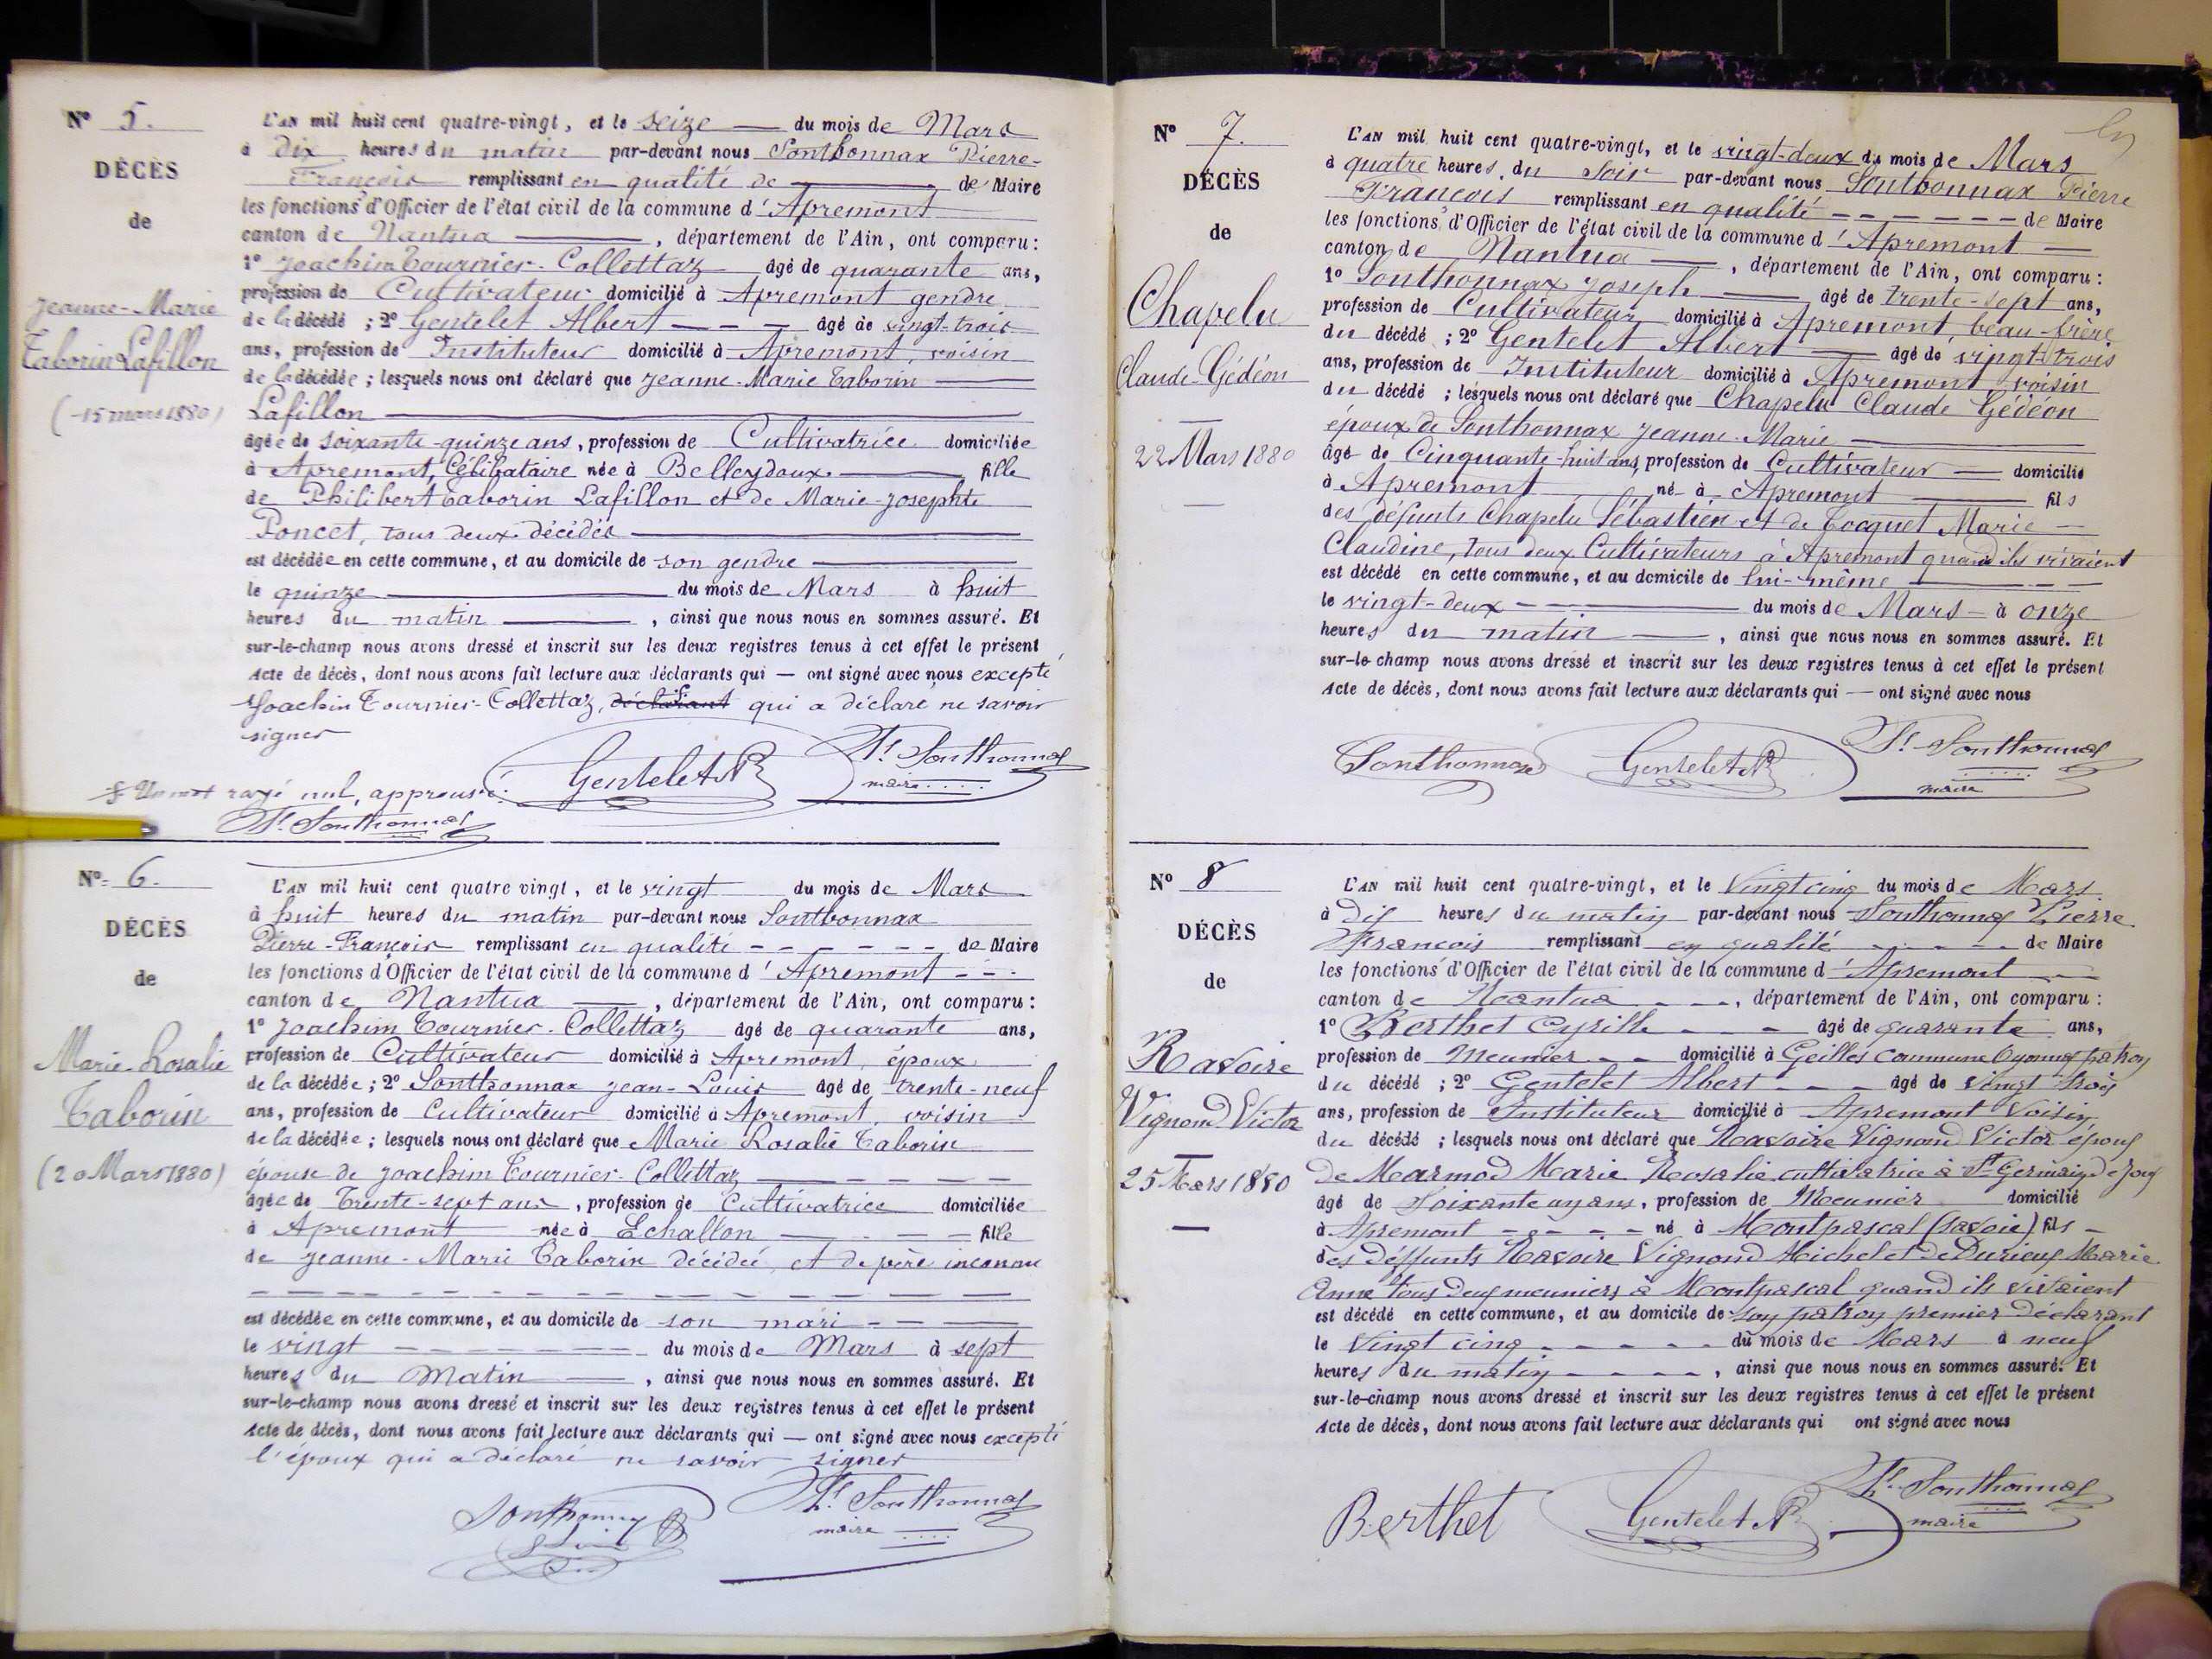 N° 5.
DÉCÈS
de
Jeanne-Marie
Taborin Lafillon
(-15 mars 1880)
L'AN mil huit cent quatre-vingt, et le seize — du mois de Mars
à dix heures du matin par-devant nous Sonthonnax Pierre-
François remplissant en qualité de — de Maire
les fonctions d'Officier de l'état civil de la commune d'Apremont
canton de Nantua — , département de l'Ain, ont comparu :
1° Joachim Tournier-Collettaz âgé de quarante ans,
profession de Cultivateur domicilié à Apremont gendre
de la décédé ; 2° Gentelet Albert — — — âgé de vingt-trois
ans, profession de Instituteur domicilié à Apremont, voisin
de la décédée ; lesquels nous ont déclaré que Jeanne-Marie Taborin —
Lafillon —
âgée de soixante-quinze ans, profession de Cultivatrice domiciliée
à Apremont, Célibataire née à Belleydoux — fille
de Philibert Taborin Lafillon et de Marie-Josephte
Poncet, tous deux décédés —
est décédée en cette commune, et au domicile de son gendre —
le quinze — du mois de Mars à huit
heures du matin — , ainsi que nous nous en sommes assuré. Et
sur-le-champ nous avons dressé et inscrit sur les deux registres tenus à cet effet le présent
Acte de décès, dont nous avons fait lecture aux déclarants qui — ont signé avec nous excepté
Joachim Tournier-Collettaz, déclarant qui a déclaré ne savoir
signer
Un mot rayé nul, approuvé.
Gentelet A
Sonthonnax
maire
Sonthonnax
N° 6.
DÉCÈS
de
Marie-Rosalie
Taborin
(20 Mars 1880)
L'AN mil huit cent quatre vingt, et le vingt du mois de Mars
à huit heures du matin par-devant nous Sonthonnax
Pierre-François remplissant en qualité - - - - - - de Maire
les fonctions d'Officier de l'état civil de la commune d'Apremont - - -
canton de Nantua — , département de l'Ain, ont comparu :
1° Joachim Tournier-Collettaz âgé de quarante ans,
profession de Cultivateur domicilié à Apremont, époux
de la décédée ; 2° Sonthonnax Jean-Louis âgé de trente-neuf
ans, profession de Cultivateur domicilié à Apremont, voisin
de la décédée ; lesquels nous ont déclaré que Marie Rosalie Taborin
épouse de Joachim Tournier-Collettaz — - - - -
âgée de Trente-sept ans, profession de Cultivatrice domiciliée
à Apremont née à Echallon — - - - fille
de Jeanne-Marie Taborin décédée, et de père inconnu
est décédée en cette commune, et au domicile de son mari - - —
le vingt - - - - - - du mois de Mars à sept
heures du Matin — , ainsi que nous nous en sommes assuré. Et
sur-le-champ nous avons dressé et inscrit sur les deux registres tenus à cet effet le présent
Acte de décès, dont nous avons fait lecture aux déclarants qui — ont signé avec nous excepté
l'époux qui a déclaré ne savoir signer
Sonthonnax
Sonthonnax
maire
N° 7.
DÉCÈS
de
Chapelu
Claude-Gédéon
22 Mars 1880
L'AN mil huit cent quatre-vingt, et le vingt-deux du mois de Mars
à quatre heures du Soir par-devant nous Sonthonnax Pierre
François remplissant en qualité - - - - - - de Maire
les fonctions d'Officier de l'état civil de la commune d'Apremont —
canton de Nantua — , département de l'Ain, ont comparu :
1° Sonthonnax Joseph — âgé de trente-sept ans,
profession de Cultivateur domicilié à Apremont, beau-frère
du décédé ; 2° Gentelet Albert — âgé de vingt-trois
ans, profession de Instituteur domicilié à Apremont, voisin
du décédé ; lesquels nous ont déclaré que Chapelu Claude Gédéon
époux de Sonthonnax Jeanne-Marie —
âgé de Cinquante-huit ans, profession de Cultivateur — domicilié
à Apremont né à Apremont — fils
des défunts Chapelu Sébastien et de Tocquet Marie —
Claudine, tous deux Cultivateurs à Apremont quand ils vivaient
est décédé en cette commune, et au domicile de lui-même —
le vingt-deux — du mois de Mars - à onze
heures du matin — , ainsi que nous nous en sommes assuré. Et
sur-le-champ nous avons dressé et inscrit sur les deux registres tenus à cet effet le présent
Acte de décès, dont nous avons fait lecture aux déclarants qui — ont signé avec nous
Sonthonnax
Gentelet A
Sonthonnax
maire
N° 8
DÉCÈS
de
Ravoire
Vignond Victor
25 Mars 1880
L'AN mil huit cent quatre-vingt, et le Vingt cinq du mois de Mars
à Dix heures du matin par-devant nous Sonthonnax Pierre
François remplissant en qualité - - - - de Maire
les fonctions d'Officier de l'état civil de la commune d'Apremont
canton de Nantua - - -, département de l'Ain, ont comparu :
1° Berthet Cyrille - - - âgé de quarante ans,
profession de Meunier - - domicilié à Geilles commune Oyonnax patron
du décédé ; 2° Gentelet Albert - - - âgé de vingt trois
ans, profession de Instituteur domicilié à Apremont Voisin
du décédé ; lesquels nous ont déclaré que Ravoire Vignond Victor époux
de Marmod Marie Rosalie cultivatrice à St Germain de Joux
âgé de Soixante un ans, profession de Meunier domicilié
à Apremont - - - - né à Montpascal (Savoie) fils -
des deffunts Ravoire Vignond Michel et de Durieux Marie
Anne tous deux meuniers à Montpascal quand ils vivaient
est décédé en cette commune, et au domicile de son patron premier déclarant
le Vingt cinq - - - - - du mois de Mars à neuf
heures du matin - - - -, ainsi que nous nous en sommes assuré. Et
sur-le-champ nous avons dressé et inscrit sur les deux registres tenus à cet effet le présent
Acte de décès, dont nous avons fait lecture aux déclarants qui ont signé avec nous
Berthet
Gentelet A
Sonthonnax
maire